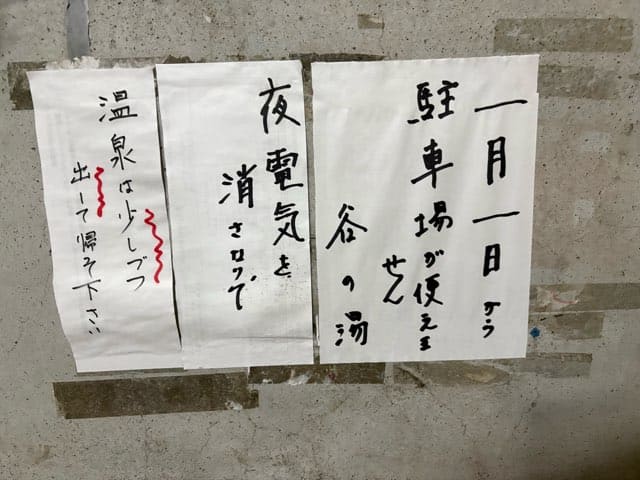 一月一日から
駐車場が使えま
せん
谷の湯
夜電気を
消さないで
温泉は少しづつ
出して帰って下さい